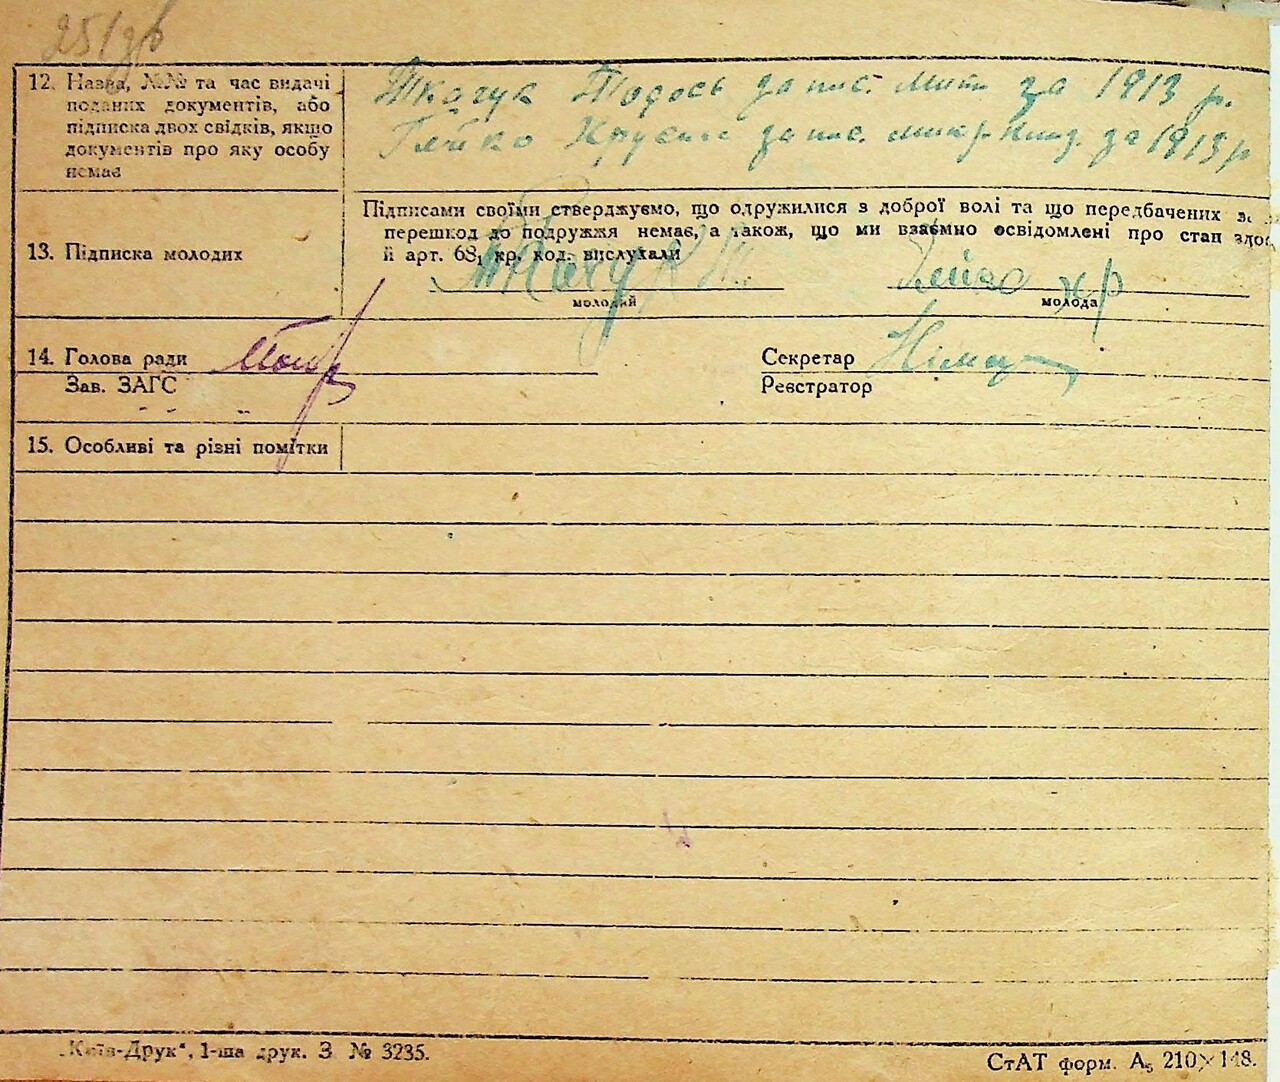 12. Назва, №№ та час видачі
поданих документів, або
підписка двох свідків, якщо
документів про яку особу
немає
Ткачук Тодось запис. за 1913 р.
запис. за 1913 р
13. Підписка молодих
Підписами своїми стверджуємо, що одружилися з доброї волі та що передбачених
перешкод до подружжя немає, а також, що ми взаємно освідомлені про стан
й арт. 68₁ кр. код. вислухали
Ткачук Т.
молодий
молода
14. Голова ради
Секретар
Зав. ЗАГС
Реєстратор
15. Особливі та різні помітки
„Київ-Друк“, 1-ша друк. З № 3235.
СтАТ форм. А₅ 210×148.